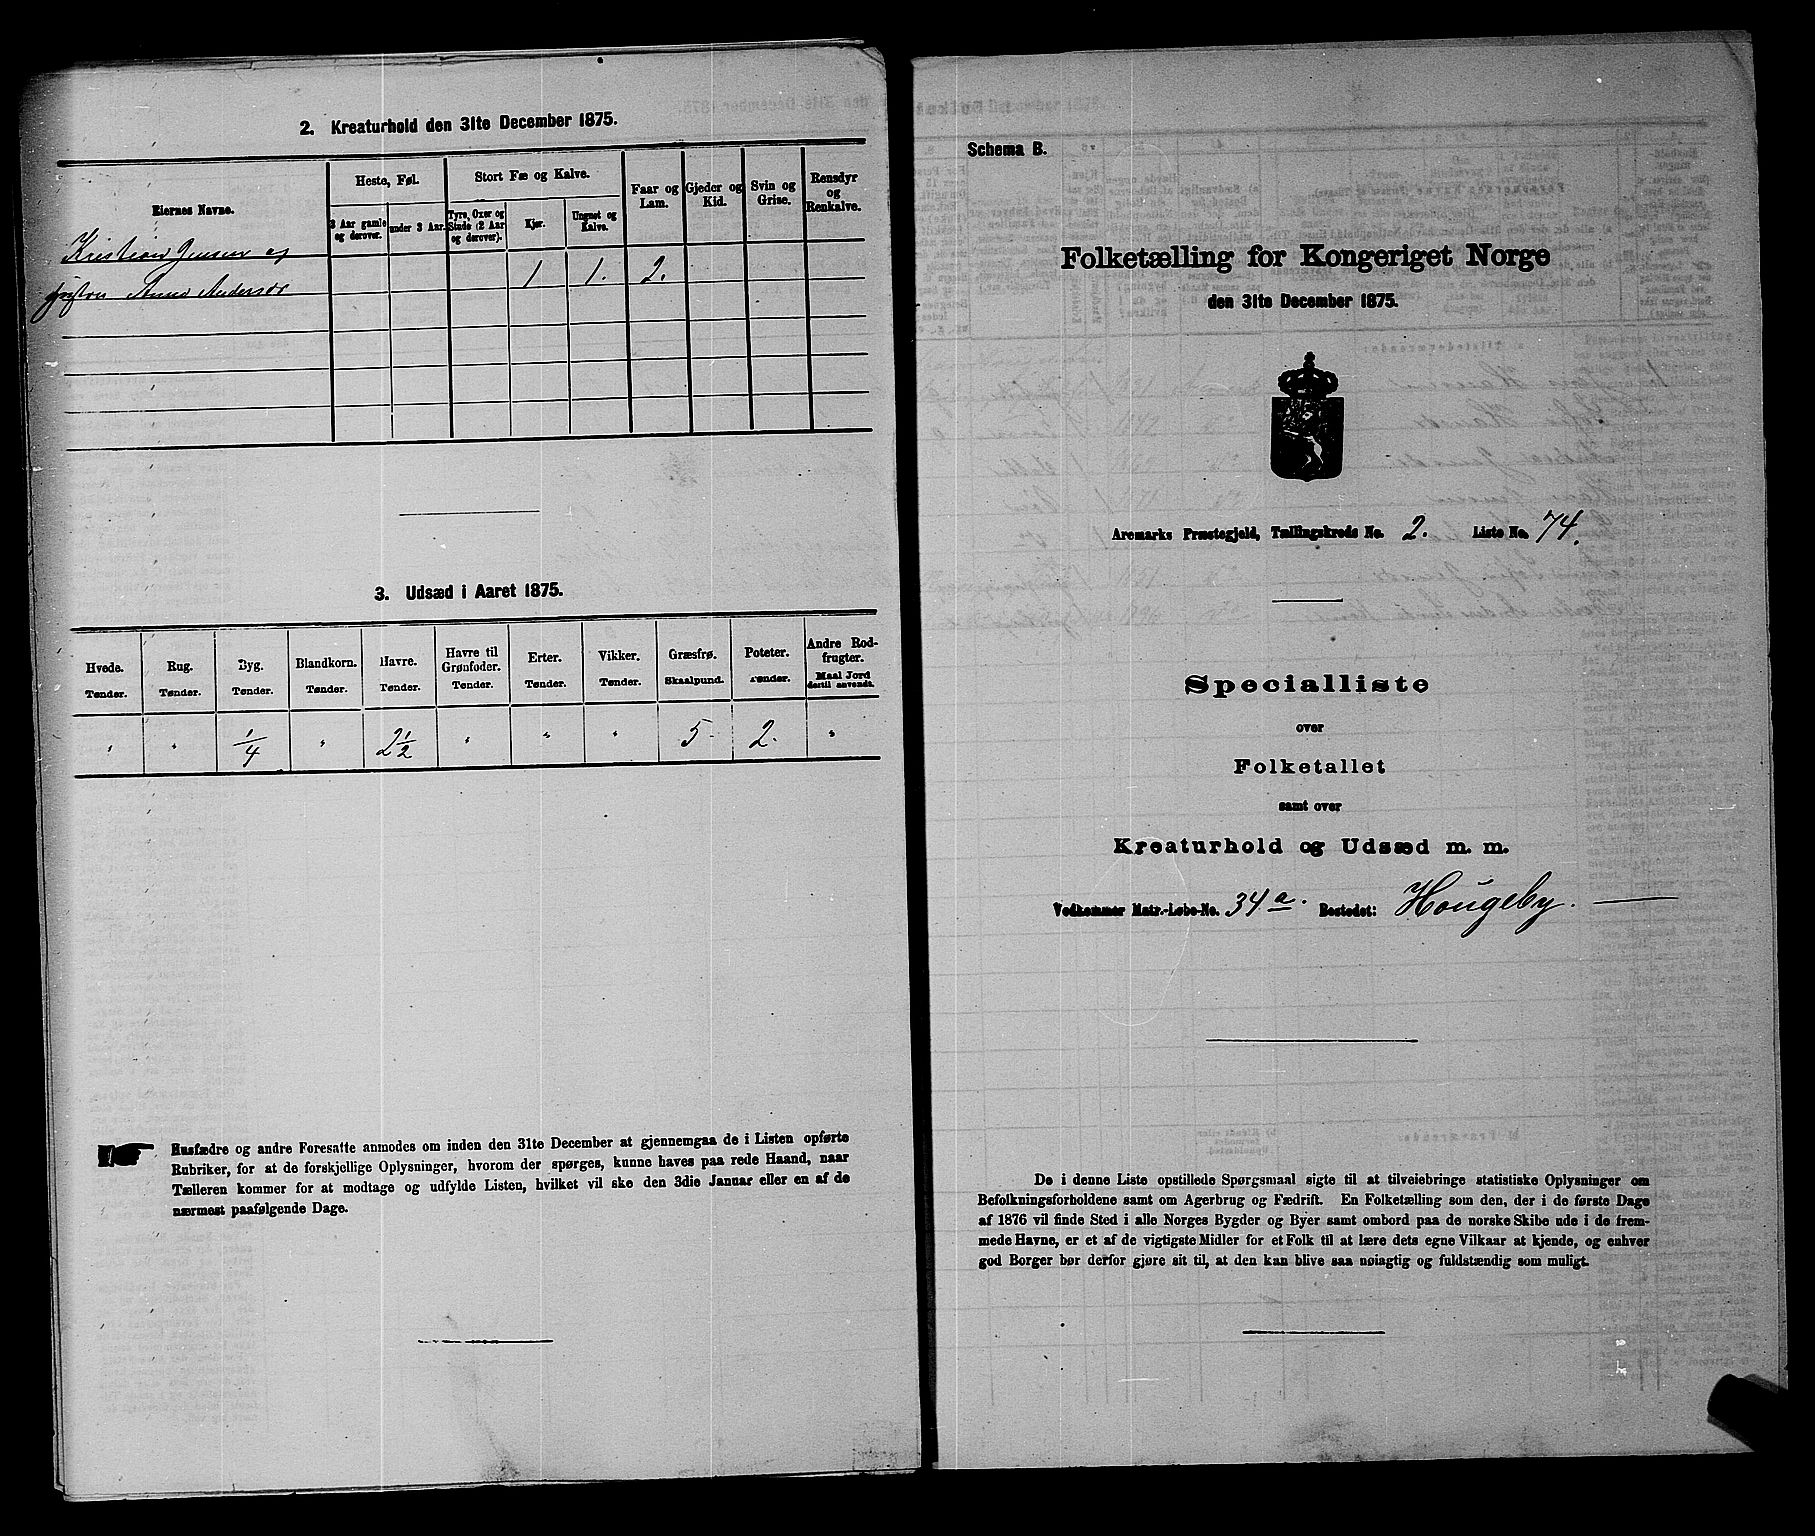 2. Kreaturhold den 31te December 1875.
Eiernes Navne.
Heste, Føl.
Stort Fæ og Kalve.
Faar og Lam.
Gjeder og Kid.
Svin og Grise.
Rensdyr og Renkalve.
3 Aar gamle og derover.
under 3 Aar.
Tyre, Oxer og Stude (2 Aar og derover).
Kjør.
Ungnet og Kalve.
Kristian Jensen og
Anne Andersdr 1 1. 2.
3. Udsæd i Aaret 1875.
Hvede. Rug. Byg. Blandkorn. Havre. Havre til Grønfoder. Erter. Vikker. Græsfrø. Poteter. Andre Rodfrugter.
Tønder. Tønder. Tønder. Tønder. Tønder. Tønder. Tønder. Tønder. Skaalpund. Tønder. Maal Jord dertil anvendt.
" " 1/4 " 2 1/2 " " " 5. 2. "
Husfædre og andre Foresatte anmodes om inden den 31te December at gjennemgaa de i Listen opførte
Rubriker, for at de forskjellige Oplysninger, hvorom der spørges, kunne haves paa rede Haand, naar
Tælleren kommer for at modtage og udfylde Listen, hvilket vil ske den 3die Januar eller en af de
nærmest paafølgende Dage.
Schema B.
Folketælling for Kongeriget Norge
den 31te December 1875.
Aremarks Præstegjeld, Tællingskreds No. 2. Liste No. 74.
Specialliste
over
Folketallet
samt over
Kreaturhold og Udsæd m. m.
Vedkommer Matr.-Løbe-No. 34a. Bostedet: Hougeby.
De i denne Liste opstillede Spørgsmaal sigte til at tilveiebringe statistiske Oplysninger om
Befolkningsforholdene samt om Agerbrug og Fædrift. En Folketælling som den, der i de første Dage
af 1876 vil finde Sted i alle Norges Bygder og Byer samt ombord paa de norske Skibe ude i de frem-
mede Havne, er et af de vigtigste Midler for et Folk til at lære dets egne Vilkaar at kjende, og enhver
god Borger bør derfor gjøre sit til, at den kan blive saa nøiagtig og fuldstændig som muligt.